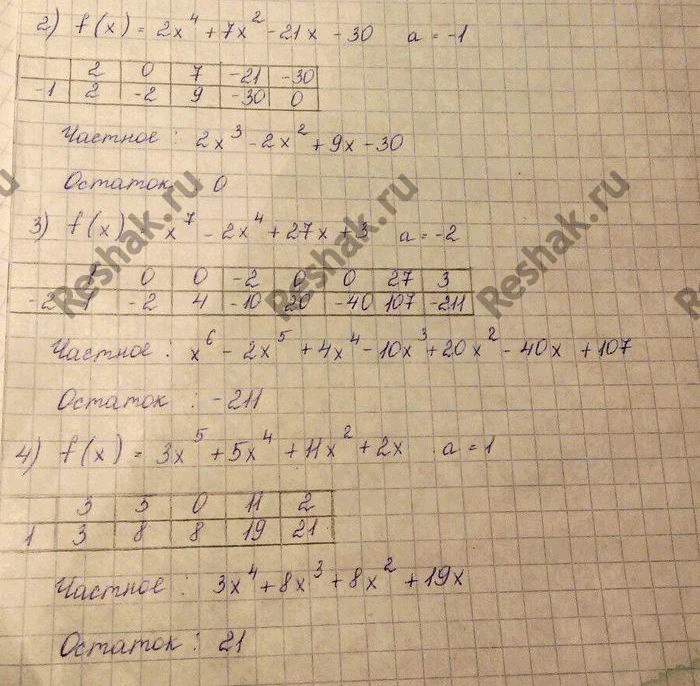 2) f(x) = 2x⁴ + 7x² - 21x - 30 a = -1
2 0 7 -21 -30
-1 2 -2 9 -30 0
Частное : 2x³ - 2x² + 9x - 30
Остаток 0
3) f(x) = x⁷ - 2x⁴ + 27x + 3 a = -2
1 0 0 -2 0 0 27 3
-2 1 -2 4 -10 20 -40 107 -211
Частное : x⁶ - 2x⁵ + 4x⁴ - 10x³ + 20x² - 40x + 107
Остаток : -211
4) f(x) = 3x⁵ + 5x⁴ + 11x² + 2x a = 1
3 5 0 11 2
1 3 8 8 19 21
Частное : 3x⁴ + 8x³ + 8x² + 19x
Остаток : 21
Reshak.ru
Reshak.ru
Reshak.ru